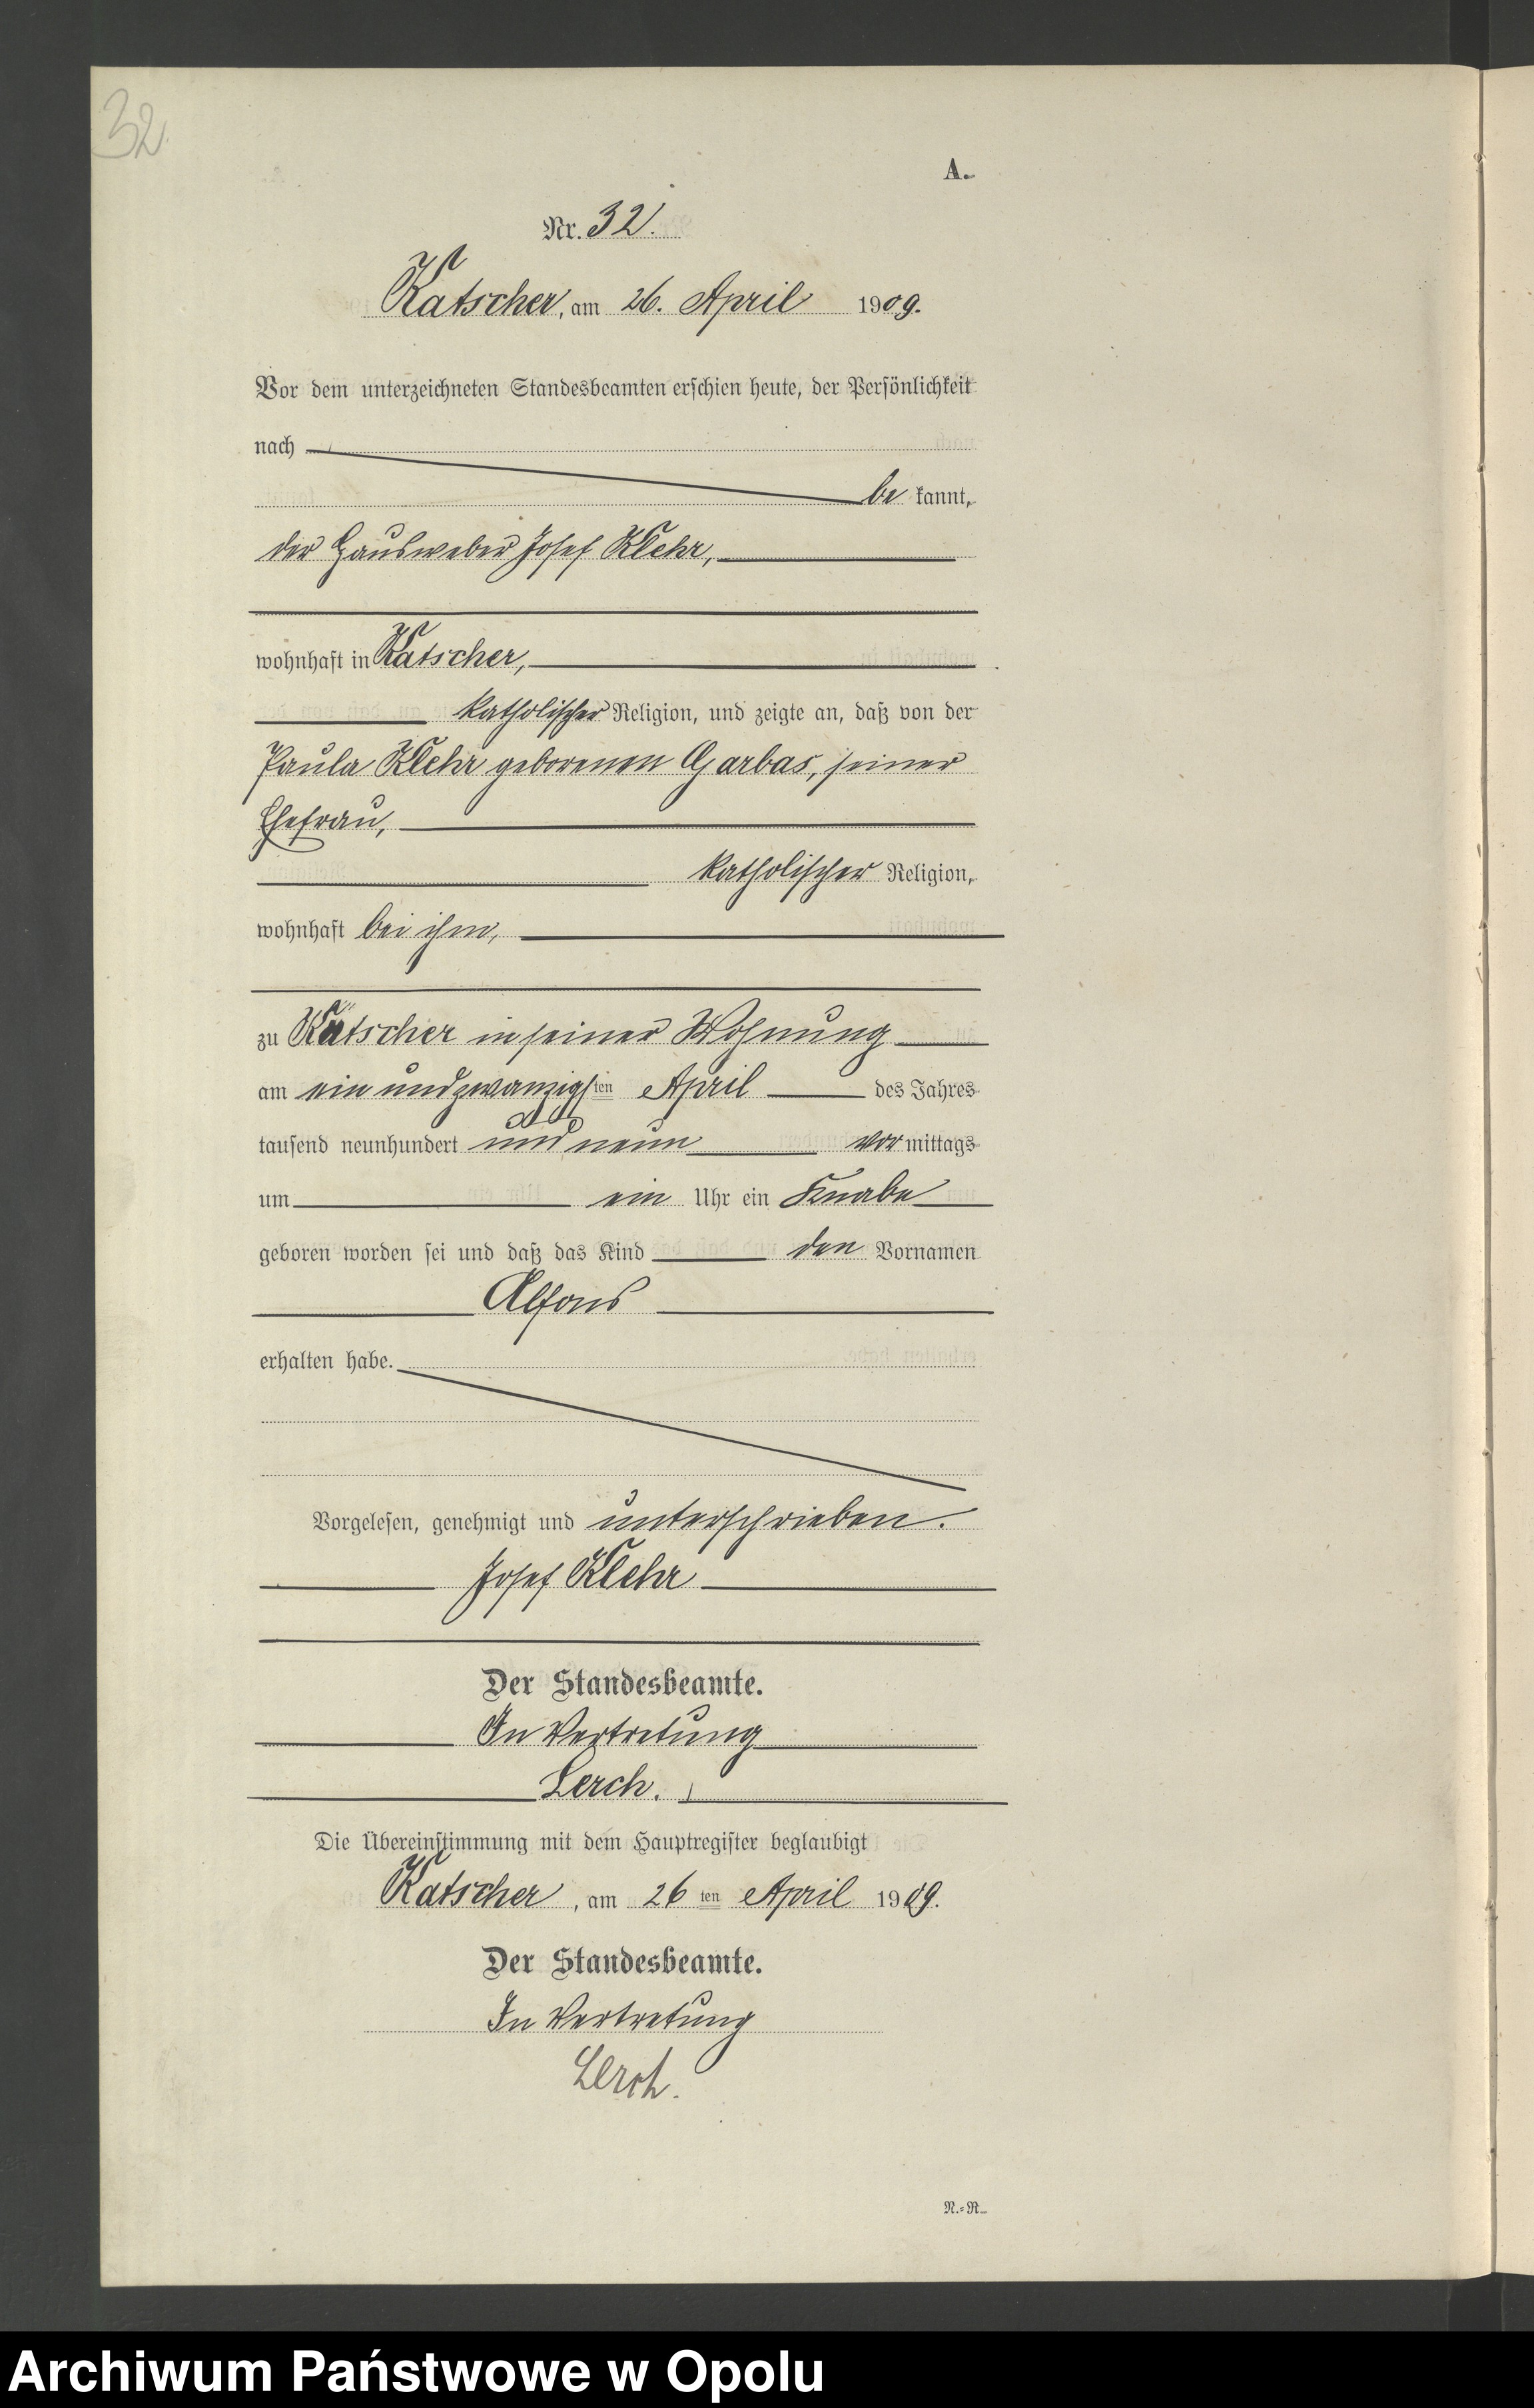 32
A.
Nr. 32.
Katscher, am 26. April 1909.
Vor dem unterzeichneten Standesbeamten erschien heute, der Persönlichkeit
nach
be kannt,
der Hausweber Josef Klehr,
wohnhaft in Katscher,
katholischer Religion, und zeigte an, daß von der
Paula Klehr geborenen Garbas, seiner
Ehefrau,
katholischer Religion,
wohnhaft bei ihm,
zu Katscher in seiner Wohnung
am ein und zwanzigsten April des Jahres
tausend neunhundert und neun vor mittags
um ein Uhr ein Knabe
geboren worden sei und daß das Kind den Vornamen
Alfons
erhalten habe.
Vorgelesen, genehmigt und unterschrieben.
Josef Klehr
Der Standesbeamte.
In Vertretung
Lerch.
Die Übereinstimmung mit dem Hauptregister beglaubigt
Katscher, am 26 ten April 1909.
Der Standesbeamte.
In Vertretung
Lerch.
N.=R.
Archiwum Państwowe w Opolu